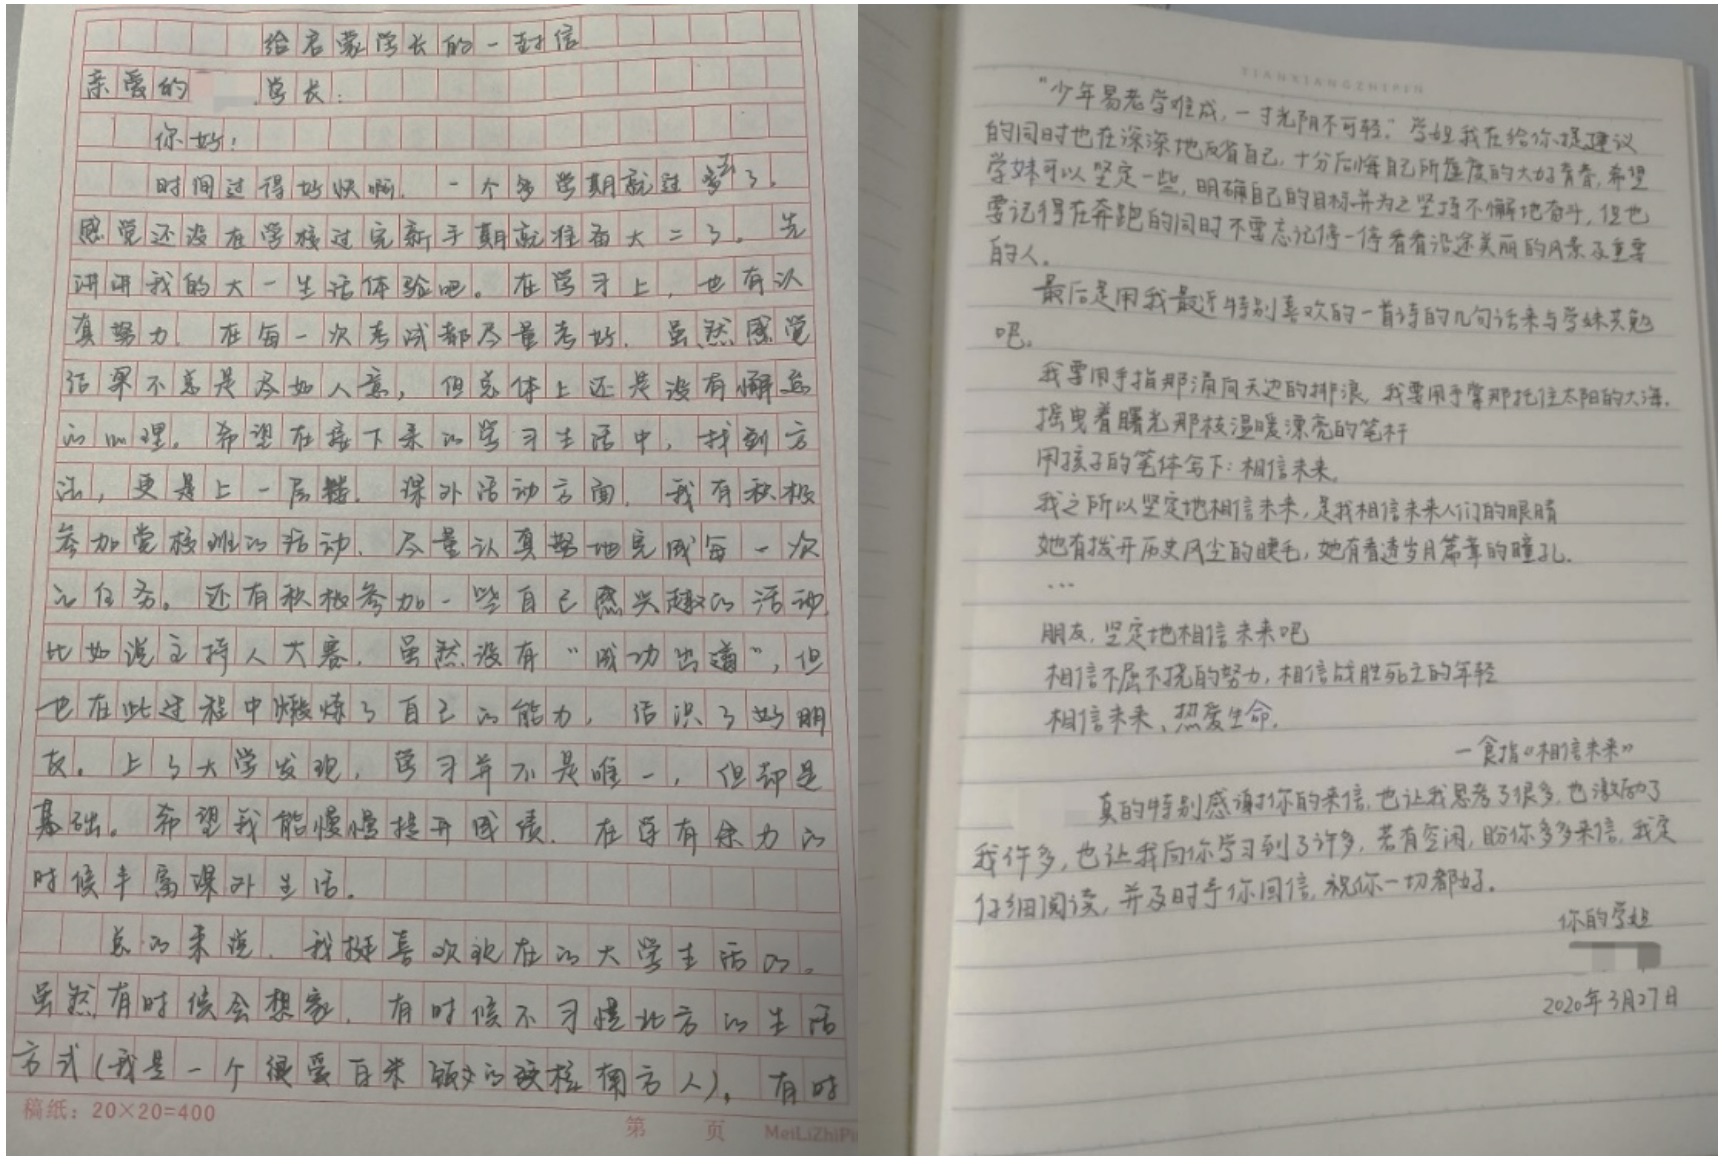 给启蒙学长的一封信
亲爱的 学长:
你好!
时间过得好快啊,一个多学期就过了。
感觉还没在学校过完新手期就准备大二了。先
讲讲我的大一生活体验吧。在学习上,也有认
真努力,在每一次考试都尽量考好,虽然感觉
结果不总是尽如人意,但总体上还是没有懈怠
的心理。希望在接下来的学习生活中,找到方
法,更是上一层楼。课外活动方面,我有积极
参加党校班的活动,尽量认真努地完成每一次
的任务。还有积极参加一些自己感兴趣的活动,
比如说主持人大赛,虽然没有“成功出道”,但
也在此过程中锻炼了自己的能力,结识了好朋
友。上了大学发现,学习并不是唯一,但却是
基础。希望我能慢慢提升成绩,在学有余力的
时候丰富课外生活。
总的来说,我挺喜欢现在的大学生活的。
虽然有时候会想家,有时候不习惯北方的生活
方式(我是一个很爱白米饭的硬核南方人),有时
稿纸:20×20=400
第 页 MeiLiZhiPi
TIANXIANGZHIPIN
“少年易老学难成,一寸光阴不可轻。”学姐我在给你提建议
的同时也在深深地反省自己,十分后悔自己所虚度的大好青春,希望
学妹可以坚定一些,明确自己的目标并为之坚持不懈地奋斗,但也
要记得在奔跑的同时不要忘记停一停看看沿途美丽的风景及重要
的人。
最后是用我最近特别喜欢的一首诗的几句话来与学妹共勉
吧。
我要用手指那涌向天边的排浪,我要用手掌那托住太阳的大海,
摇曳着曙光那枝温暖漂亮的笔杆
用孩子的笔体写下:相信未来。
我之所以坚定地相信未来,是我相信未来人们的眼睛
她有拨开历史风尘的睫毛,她有看透岁月篇章的瞳孔。
...
朋友,坚定地相信未来吧
相信不屈不挠的努力,相信战胜死亡的年轻
相信未来、热爱生命。
—食指《相信未来》
真的特别感谢你的来信,也让我思考了很多,也激励了
我许多,也让我向你学习到了许多,若有空闲,盼你多多来信,我定
仔细阅读,并及时予你回信,祝你一切都好。
你的学姐
2020年3月27日